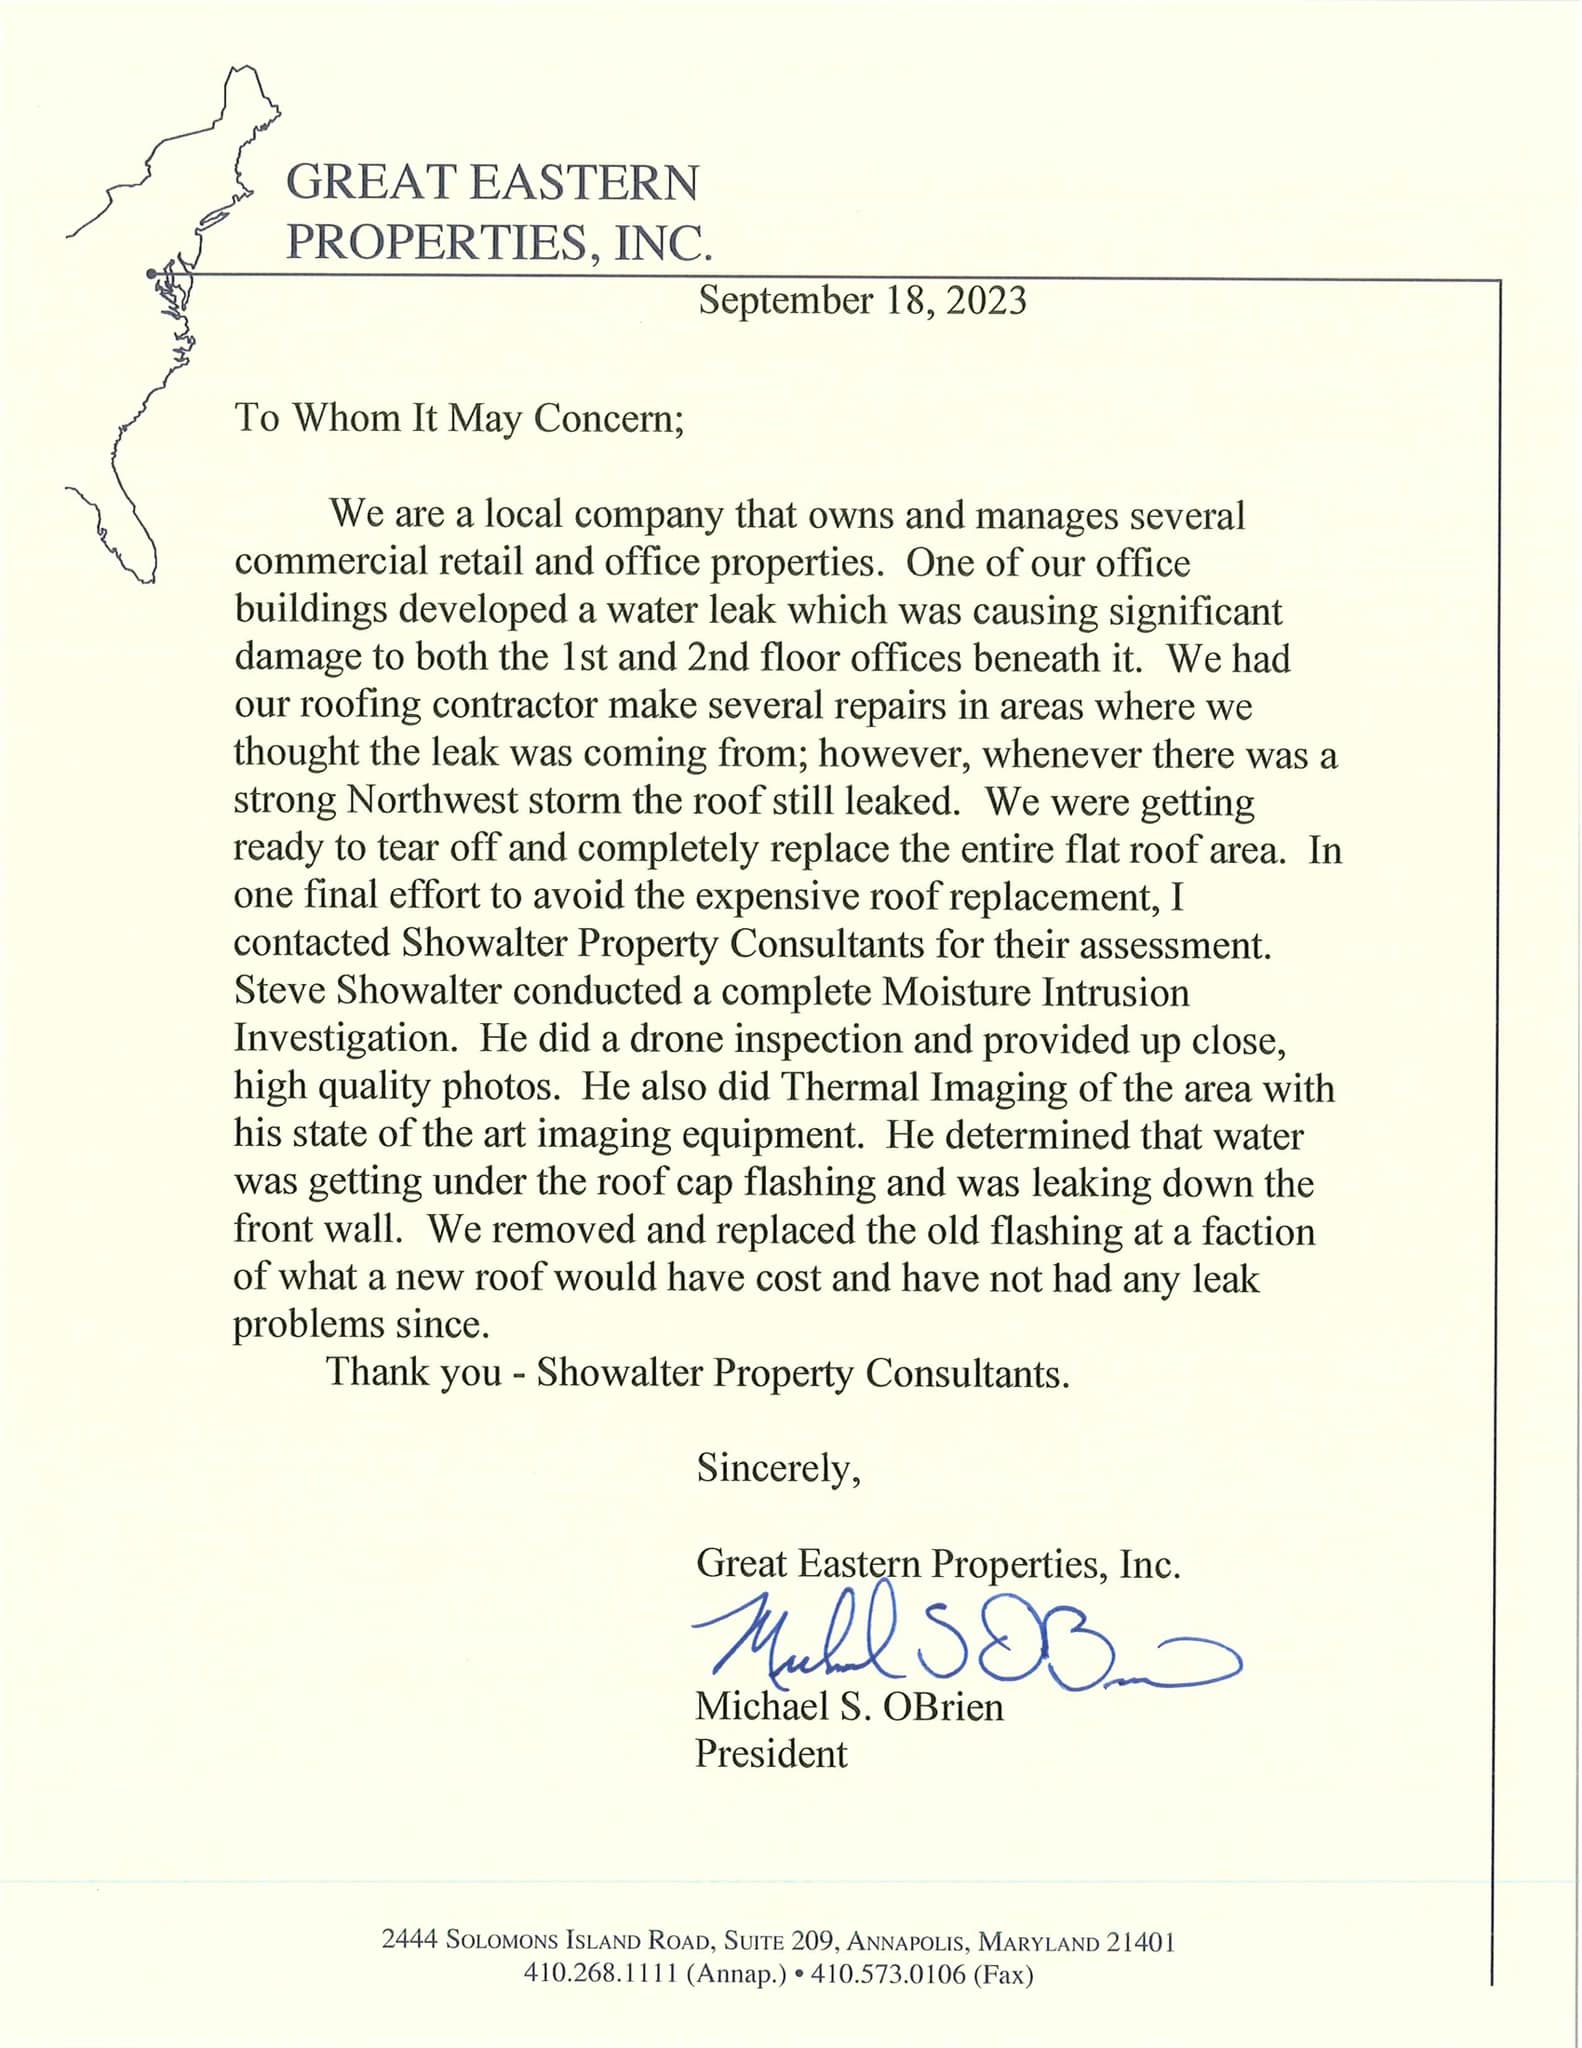 GREAT EASTERN
PROPERTIES, INC.
September 18, 2023
To Whom It May Concern;
We are a local company that owns and manages several
commercial retail and office properties. One of our office
buildings developed a water leak which was causing significant
damage to both the 1st and 2nd floor offices beneath it. We had
our roofing contractor make several repairs in areas where we
thought the leak was coming from; however, whenever there was a
strong Northwest storm the roof still leaked. We were getting
ready to tear off and completely replace the entire flat roof area. In
one final effort to avoid the expensive roof replacement, I
contacted Showalter Property Consultants for their assessment.
Steve Showalter conducted a complete Moisture Intrusion
Investigation. He did a drone inspection and provided up close,
high quality photos. He also did Thermal Imaging of the area with
his state of the art imaging equipment. He determined that water
was getting under the roof cap flashing and was leaking down the
front wall. We removed and replaced the old flashing at a faction
of what a new roof would have cost and have not had any leak
problems since.
Thank you - Showalter Property Consultants.
Sincerely,
Great Eastern Properties, Inc.
Michael S OBrien
Michael S. OBrien
President
2444 SOLOMONS ISLAND ROAD, SUITE 209, ANNAPOLIS, MARYLAND 21401
410.268.1111 (Annap.) • 410.573.0106 (Fax)